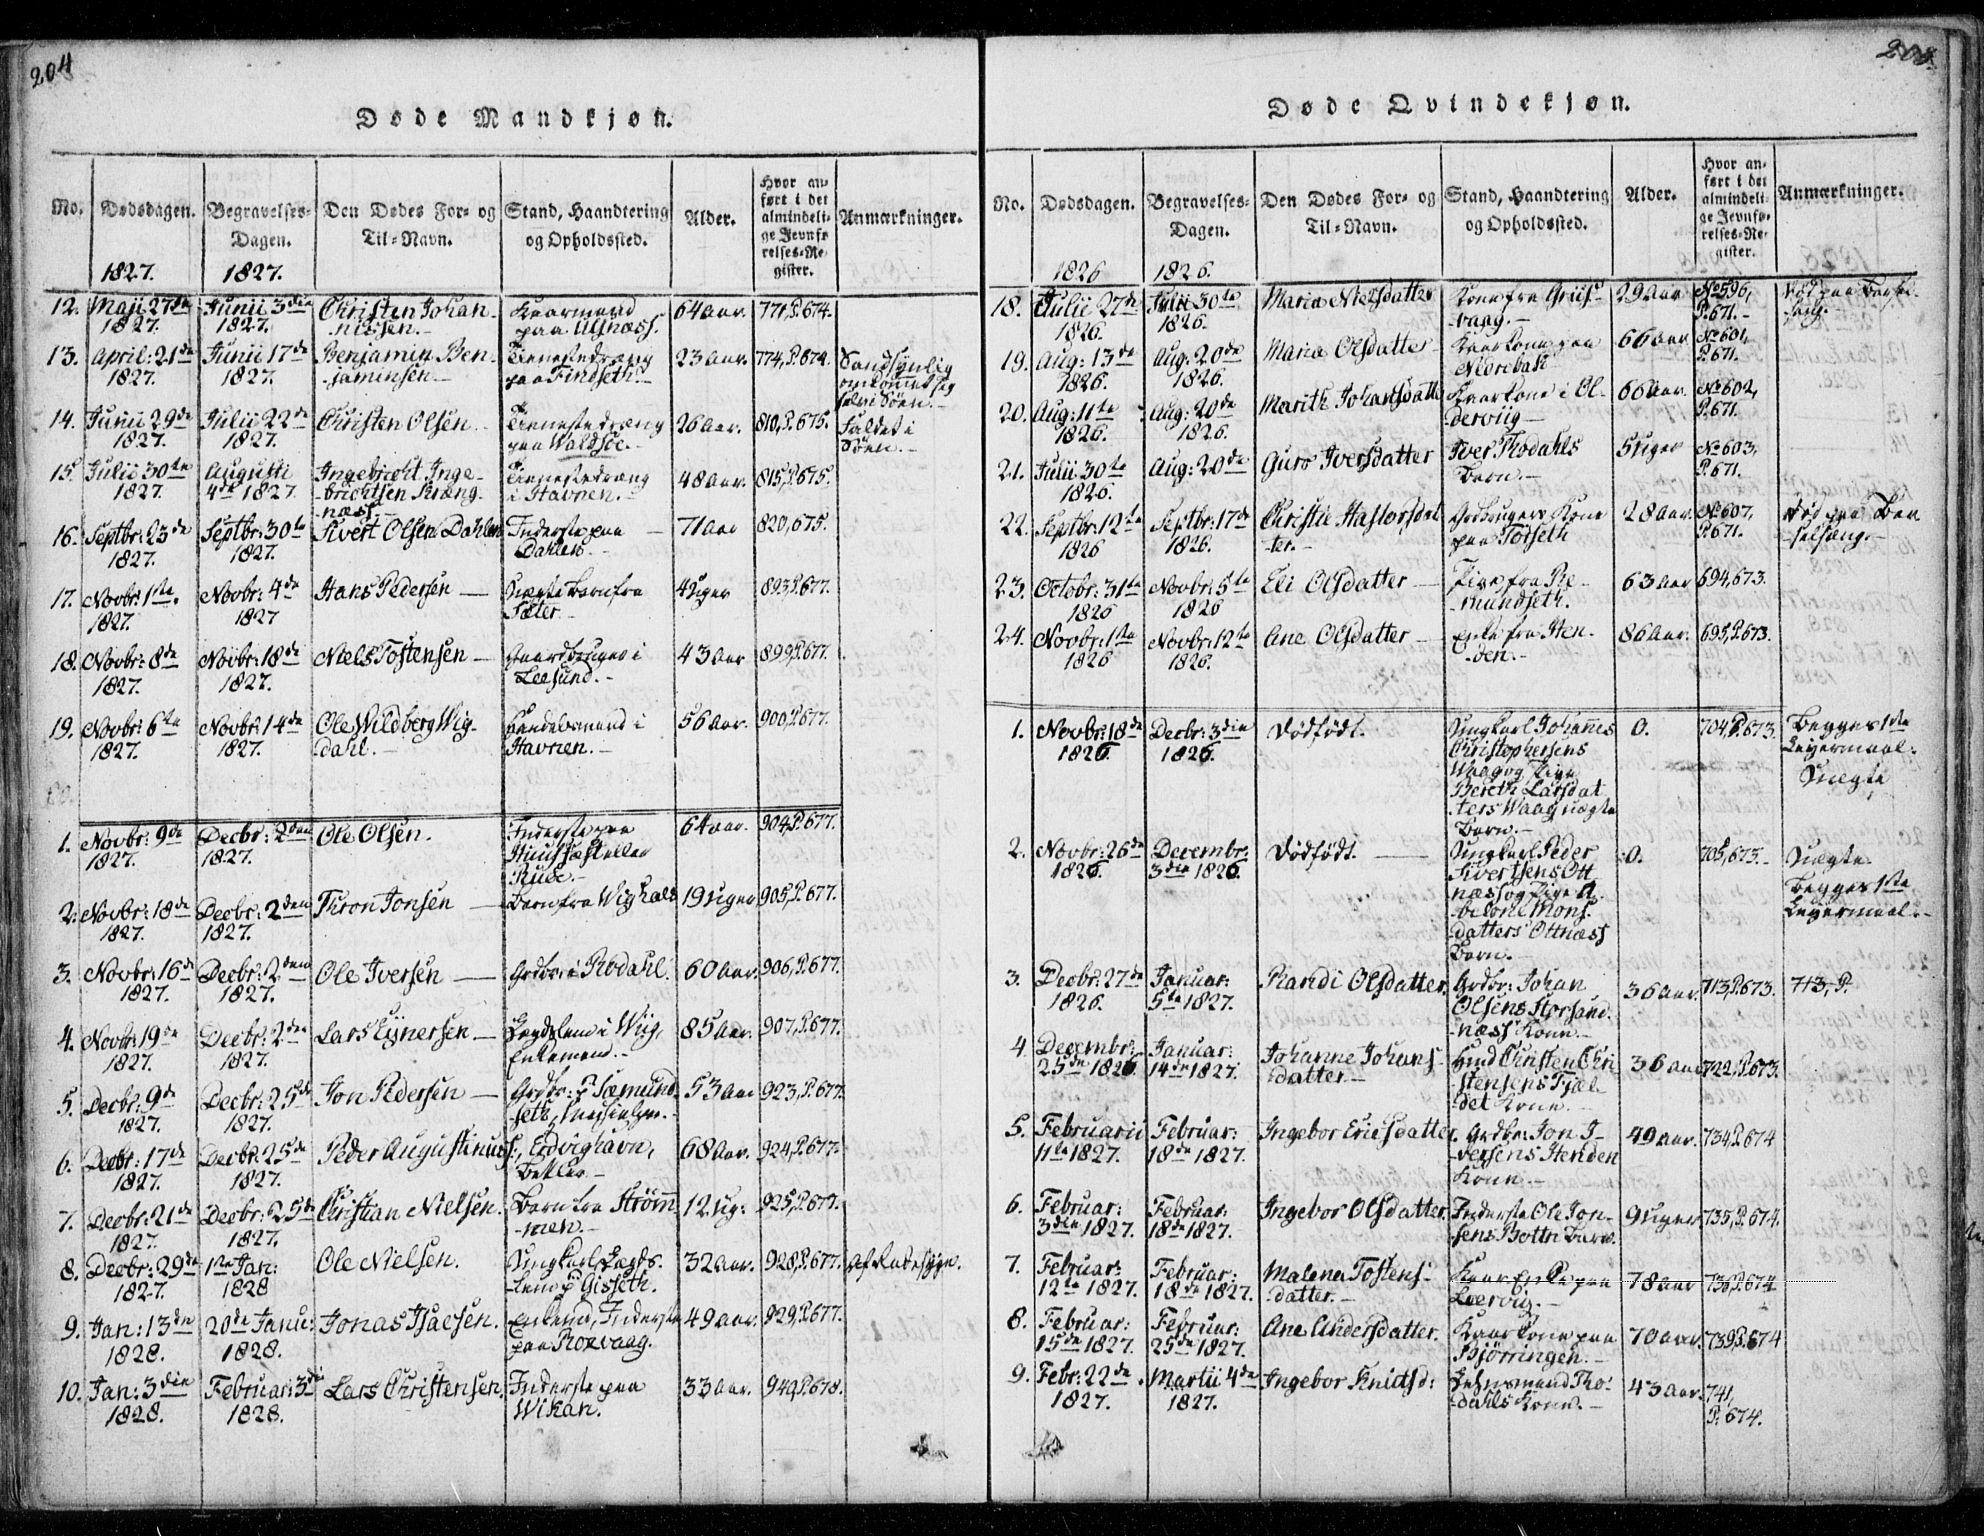 204
Døde Mandkjøn.
No.
Dødsdagen.
Begravelses-
Dagen.
Den Dødes For- og
Til-Navn.
Stand, Haandtering
og Opholdssted.
Alder.
Hvor an-
ført i det
almindeli-
ge Jevnfø-
relses-Re-
gister.
Anmærkninger.
1827.
1827.
12. Maii 27de
1827.
Junii 3die
1827.
Christen Johan-
nessen.
Kaarmand
paa Ulsnæss.
64 aar.
771, P. 674.
13. April: 21de
1827.
Junii 17de
1827.
Benjamin Ben-
jaminsen
Tienestedræng
paa Findseth.
23 aar.
774, P. 674.
Sandsynlig
omkommet sig
selv i Søen.
14. Junii 29de
1827.
Julii 22de
1827.
Christen Olsen.
Tienestedræng
paa Waldsøe.
26 aar.
810, P. 675.
Faldet i
Søen.
15. Julii 30te
1827.
Augusti
4de 1827.
Ingebricht Inge-
brichtsen Kræng-
næss.
Tienestedræng
i Havnen.
48 aar.
815, P. 675.
16. Septbr: 23de
1827.
Septbr: 30te
1827.
Sivert Olsen Dahlen
Inderste paa
Dahlen.
71 aar
820, 675.
17. Novbr: 1ste.
1827.
Novbr: 4de
1827
Hans Pedersen
Uægte Barn fra
Sæter
4 Uger
893, P. 677.
18. Novbr: 8de
1827.
Novbr: 18de
1827.
Niels Tostensen
Gaardbruger i
Leesund.
43 aar
899, P. 677.
19. Novbr: 6te
1827.
Novbr: 14de
1827.
Ole Wildberg Wig-
dahl.
Handelsmand i
Havnen.
56 aar.
900, P. 677.
1. Novbr: 9de
1827.
Decbr: 2den
1827.
Ole Olsen.
Inderste paa
Huussæst eller
Ruee.
64 aar.
904, P. 677.
2. Novbr: 18de
1827.
Decbr: 2den
1827.
Thron Jonsen
Barn fra Wighals
19 Uger
905, P. 677.
3. Novbr: 16de
1827.
Decbr: 2den
1827.
Ole Iversen
Grdbr: i Rodahl.
60 aar.
906, P. 677.
4. Novbr: 19de
1827.
Decbr: 2den
1827.
Lars Ejnersen
Lægdslem i Wiig,
Enkemand.
85 aar.
907, P. 677.
5. Decbr: 9de
1827.
Decbr: 25de
1827.
Jon Pedersen
Grdbr: p Sæmund-
seth,
53 aar
923, P. 677.
6. Decbr: 17de
1827.
Decbr: 25de
1827.
Peder Augustinuss:,
Edvighavn,
Betler
68 aar.
924, P. 677.
7. Decbr: 21de
1827.
Decbr: 25de
1827.
Christian Nielsen.
Barn fra Strøm-
men.
12 Ug:
925, P. 677.
8. Decbr: 29de
1827.
1ste Jan:
1828
Ole Nielsen.
Ungkarl Lægds-
Lem p Gisseth.
32 aar.
928, P. 677.
Af Radesyge.
9. Jan: 13de
1828.
20de Janu:
1828.
Jonas Isacsen.
Enkemd, Inderste
paa Roxvaag.
49 aar.
929, P. 677.
10. Jan: 3die
1828.
Februar: 3die
1828.
Lars Christensen.
Inderste paa
Wikan.
33 aar.
940, P. 678.
205.
Døde Qvindekjøn.
No.
Dødsdagen.
Begravelses-
Dagen.
Den Dødes For- og
Til-Navn.
Stand, Haandtering
og Opholdssted.
Alder.
Hvor an-
ført i det
almindeli-
ge Jevnfø-
relses-Re-
gister.
Anmærkninger.
1826
1826.
18. Julii 27de
1826.
Julii 30te
1826.
Maria Nielsdatter
Kone fra Griis-
vaag.
29 aar
No 596,
P. 671.
Død paa Barsel-
sæng.
19. Aug: 13de
1826.
Aug: 20de
1826.
Maria Olsdatter
Kaarkone paa
Nærebak
66 aar
No 601,
P. 671.
20. Aug: 11te
1826.
Aug: 20de
1826.
Marith Johansdatter
Kaarkone i Ol-
derviig
66 aar.
No 602,
P. 671.
21. Julii 30te
1826.
Aug: 20de
Guro Iversdatter
Iver Rodahls
Barn.
5 Uger
No 603,
P. 671.
22. Septbr: 12te
1826
Septbr: 17de
1826.
Christie Hastorsdat-
ter.
Grdbrugers Kone
paa Torseth
28 aar.
No 607,
P. 671.
Død paa Bar-
selsæng.
23. Octobr: 31te
1826
Novbr: 5te
1826
Eli Olsdatter
Pige fra Re-
mundseth.
63 aar
694, 673.
24. Novbr: 1ste
1826
Novbr: 12te
1826.
Ane Olsdatter
Enke fra Sten-
den.
86 aar.
695, P. 673.
1. Novbr: 18de
1826.
Decbr: 3die
1826.
Dødfødt.
Ungkarl Johannes
Christophersens
Waag og Pige
Bereth Larsdat-
ters Waag uægte
Barn.
0.
704, P. 673.
Begges 1ste
Leyermaal.
Uægte
2. Novbr: 26de
1826.
Decembr:
3die 1826.
Dødfødt.
Ungkarl Peder
Sivertsens Ott-
næss og Pige A-
belone Mons-
datters Ottnæss
Barn.
0.
705, 673.
Uægte.
Begges 1ste
Leyermaal.
3. Decbr: 27de
1826.
Januar:
5te 1827.
Randi Olsdatter.
Grdbr: Johan
Olsens Storsand-
næss Kone.
36 aar.
713, P. 673.
713, P.
4. Decembr:
25de 1826
Januar:
14de 1827.
Johanne Johans-
datter.
Hmd Christen Chri-
stensens Fjæl-
det Kone.
36 aar
722, P. 673.
5. Februarii
11te 1827.
Februar:
18de 1827.
Ingebor Ericsdatter.
Grdbr: Jon I-
versens Stenden
Kone.
49 aar.
734, P. 674
6. Februar:
3die 1827.
Februar:
18de 1827.
Ingebor Olsdatter.
Inderste Ole Jon-
sens Bottn Barn.
9 Uger
735, P. 674.
7. Februar:
12te 1827.
Februar:
18de 1827.
Malena Tostens-
datter.
Kaar Enke paa
Leervig.
78 aar
736, P. 674
8. Februar:
15de 1827.
Februar:
25de 1827.
Ane Andersdatter.
Kaarkone paa
Bjørringen.
70 aar.
739, P. 674
9. Febr: 22de.
1827.
Martii 4de
1827.
Ingebor Knudsd:
Lehnsmand Rho-
dahls Kone.
43 aar.
741,
P. 674.